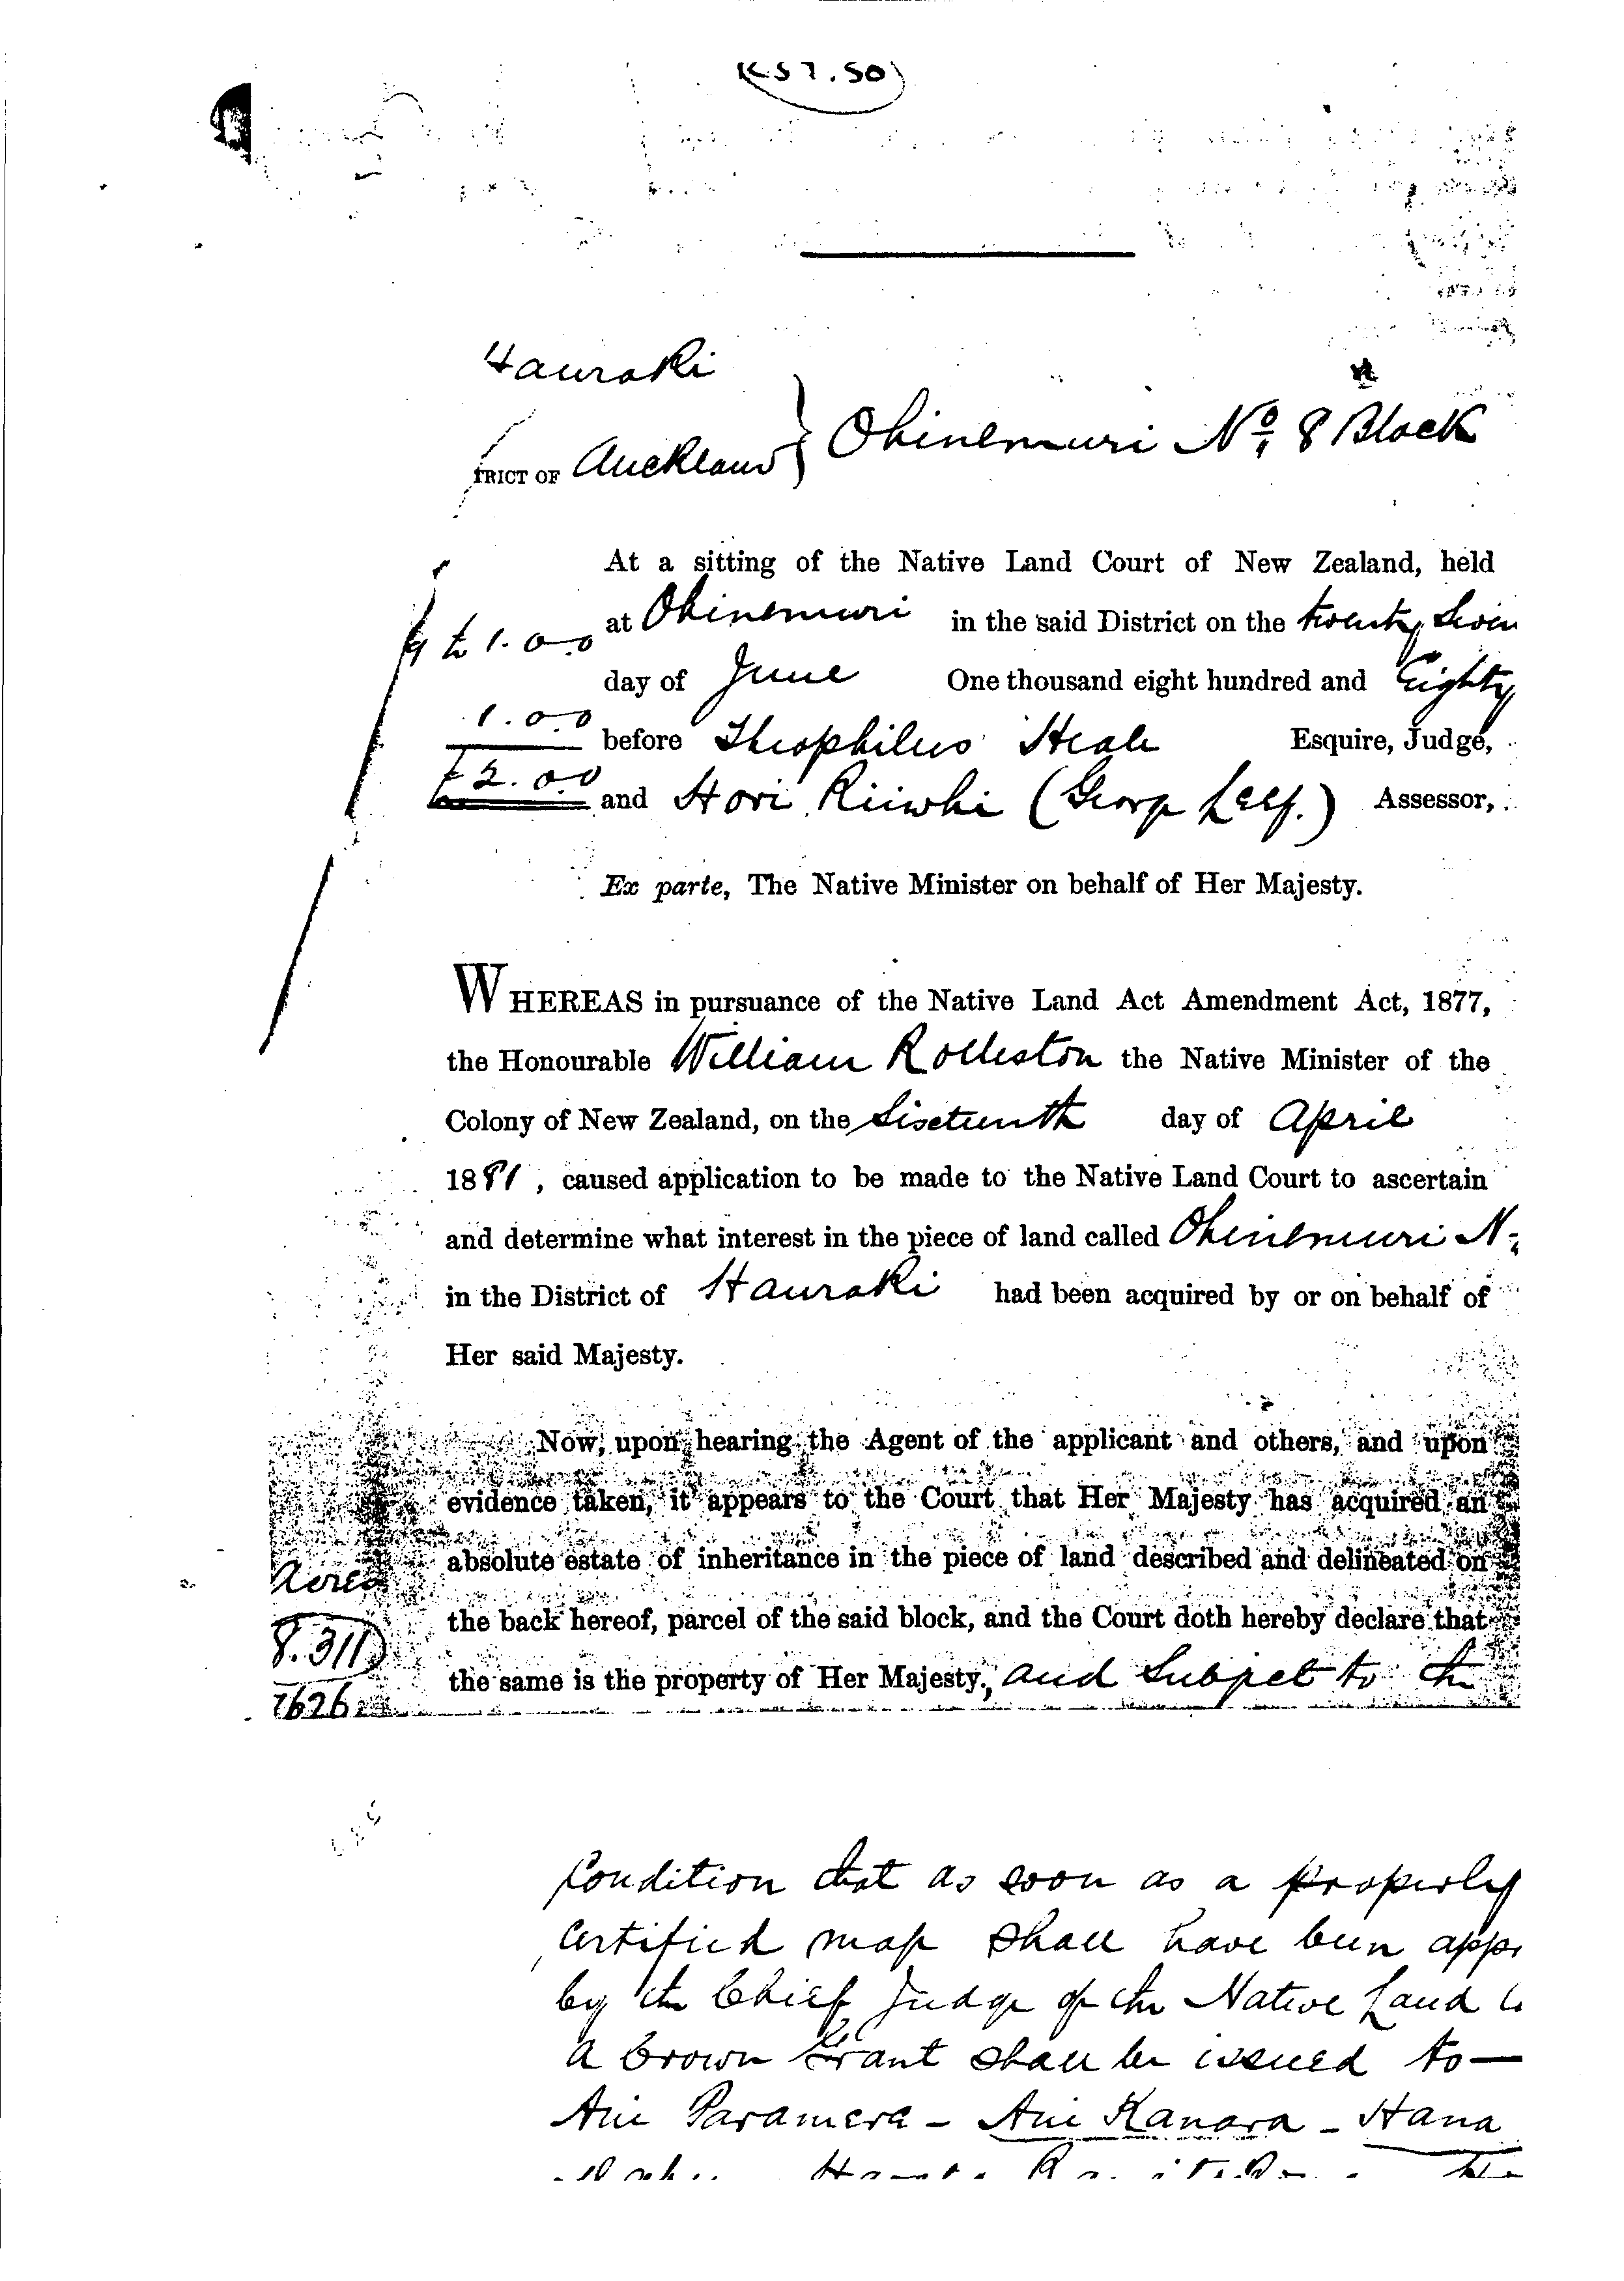 57.50
Hauraki
TRICT OF Auckland } Ohinemuri No. 8 Block
At a sitting of the Native Land Court of New Zealand, held
at Ohinemuri in the said District on the twenty Seven
£ 1.0.0
day of June One thousand eight hundred and Eighty
1.0.0
before Theophilus Heale Esquire, Judge,
£2.0.0
and Hori Riiwhi (George Leef.) Assessor,
Ex parte, The Native Minister on behalf of Her Majesty.
WHEREAS in pursuance of the Native Land Act Amendment Act, 1877,
the Honourable William Rolleston the Native Minister of the
Colony of New Zealand, on the Sixteenth day of April
1881, caused application to be made to the Native Land Court to ascertain
and determine what interest in the piece of land called Ohinemuri N
in the District of Hauraki had been acquired by or on behalf of
Her said Majesty.
Now, upon hearing the Agent of the applicant and others, and upon
evidence taken, it appears to the Court that Her Majesty has acquired an
absolute estate of inheritance in the piece of land described and delineated on
Acres
the back hereof, parcel of the said block, and the Court doth hereby declare that
8.311
the same is the property of Her Majesty., and Subject to the
7626
Condition that as soon as a properly
certified map shall have been appr
by the Chief Judge of the Native Land Co
a Crown Grant shall be issued to—
Ani Paramera - Ani Kanara - Hana